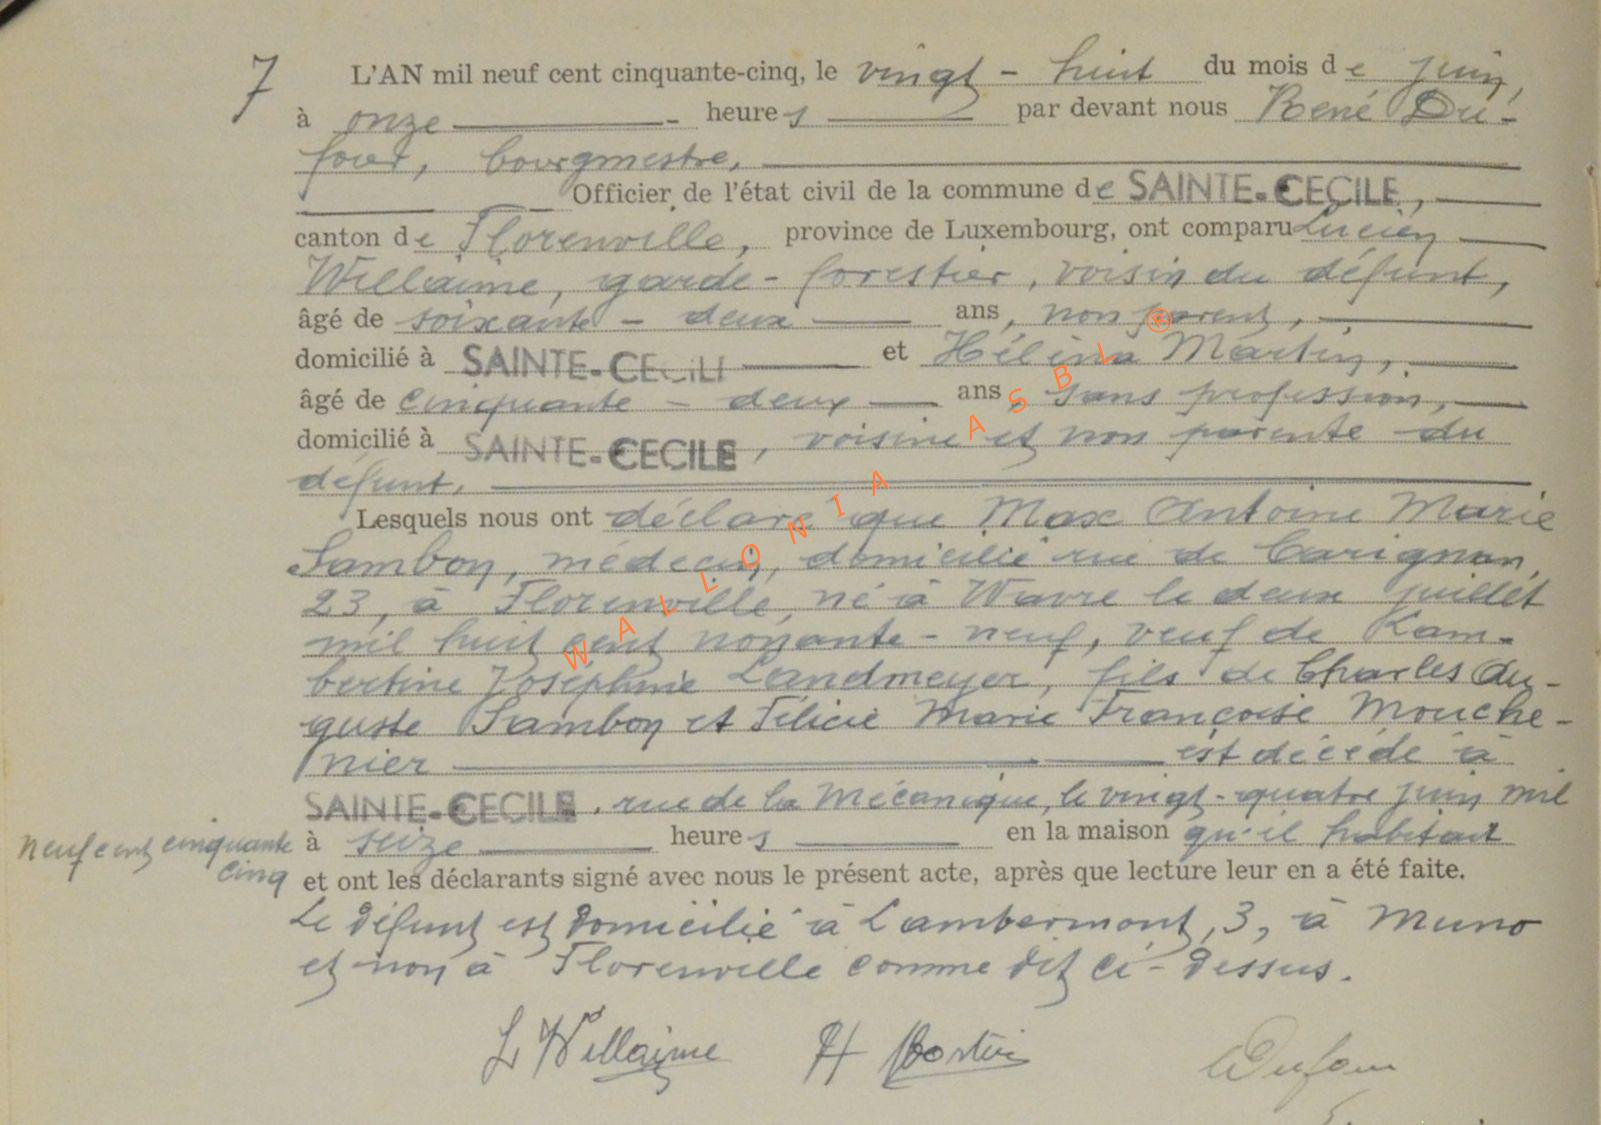 7 L'AN mil neuf cent cinquante-cinq, le vingt-huit du mois de juin,
à onze heures par devant nous René Du-
four, bourgmestre,
Officier de l'état civil de la commune de SAINTE-CECILE,
canton de Florenville, province de Luxembourg, ont comparu Lucien
Willaime, garde-forestier, voisin du défunt,
âgé de soixante-deux ans, non parent,
domicilié à SAINTE-CECILE et Hélèna Martin,
âgé de cinquante-deux ans, sans profession,
domicilié à SAINTE-CECILE, voisine et non parente du
défunt.
Lesquels nous ont déclaré que Max Antoine Marie
Sambon, médecin, domicilié rue de Carignan,
23, à Florenville, né à Wavre le deux juillet
mil huit cent nonante-neuf, veuf de Lam-
bertine Joséphine Landmeyer, fils de Charles Au-
guste Sambon et Félicie Marie Françoise Mouche-
nier est décédé à
SAINTE-CECILE, rue de la Mécanique, le vingt-quatre juin mil
neuf cent cinquante
cinq
à seize heures en la maison qu'il habitait
et ont les déclarants signé avec nous le présent acte, après que lecture leur en a été faite.
Le défunt est domicilié à Lambermont, 3, à Muno
et non à Florenville comme dit ci-dessus.
L Willaime H Martin Dufour
WALLONIA ASBL ®